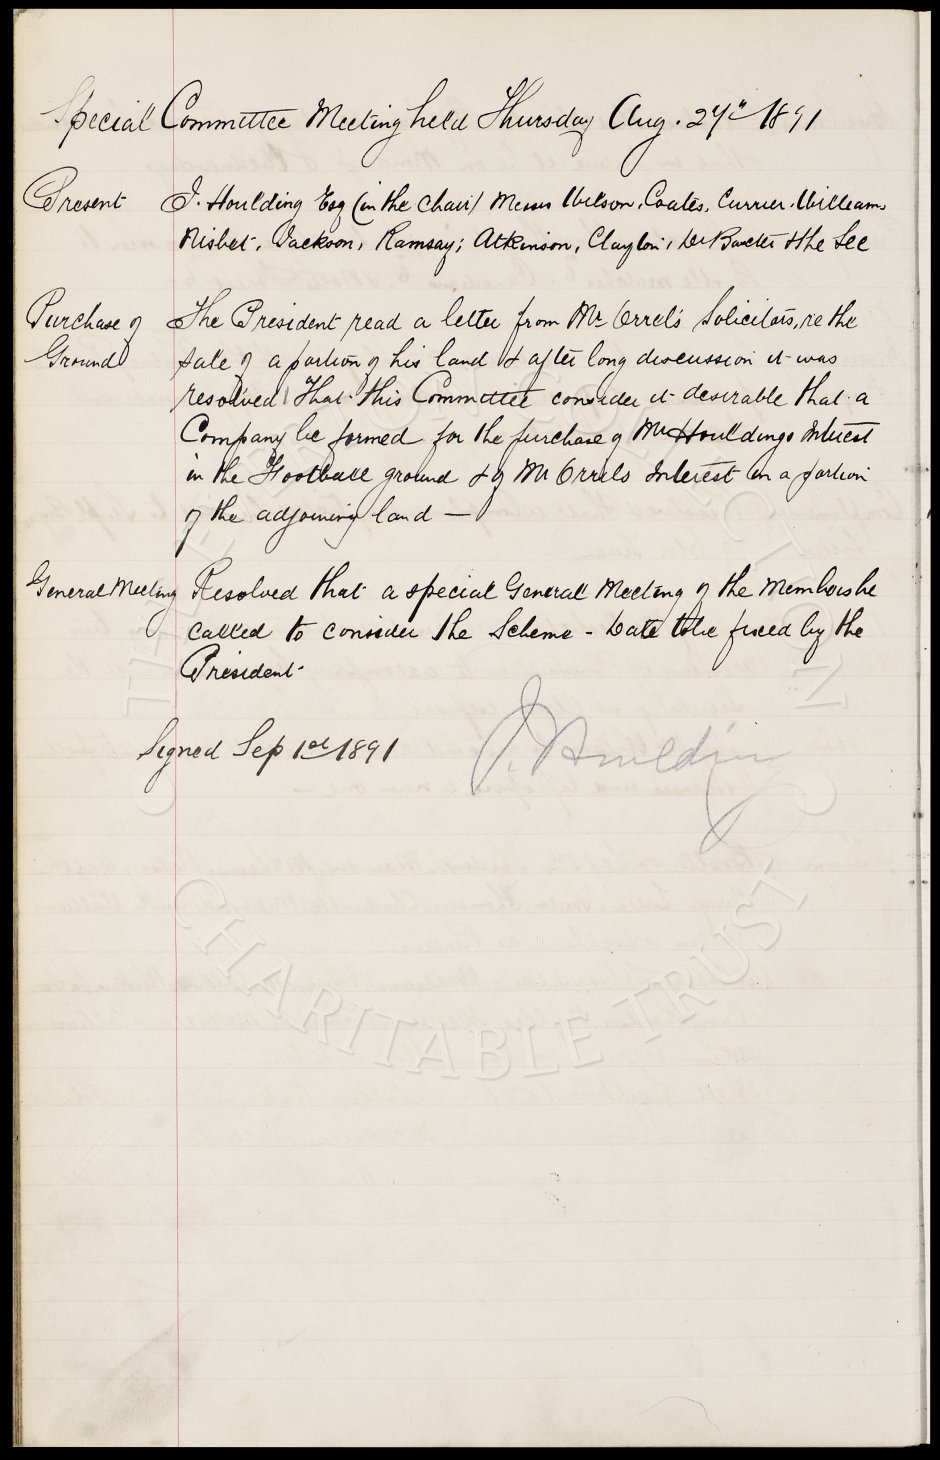 Special Committee Meeting held Thursday Aug. 27th 1891
Present J. Houlding Esq (in the chair) Messrs Wilson, Coates, Currier, Williams
Nisbet, Jackson, Ramsay, Atkinson, Clayton, Dr Baxter & the Sec
Purchase of Ground
The President read a letter from Mr Orrel's Solicitors, re the
sale of a portion of his land & after long discussion it was
resolved That this Committee consider it desirable that a
Company be formed for the purchase of Mr Houldings Interest
in the Football ground & of Mr Orrels Interest in a portion
of the adjoining land —
General Meeting Resolved that a special General Meeting of the Members be
called to consider the Scheme - Date to be fixed by the
President
Signed Sep 1st 1891 J. Houlding
CHARITABLE TRUST